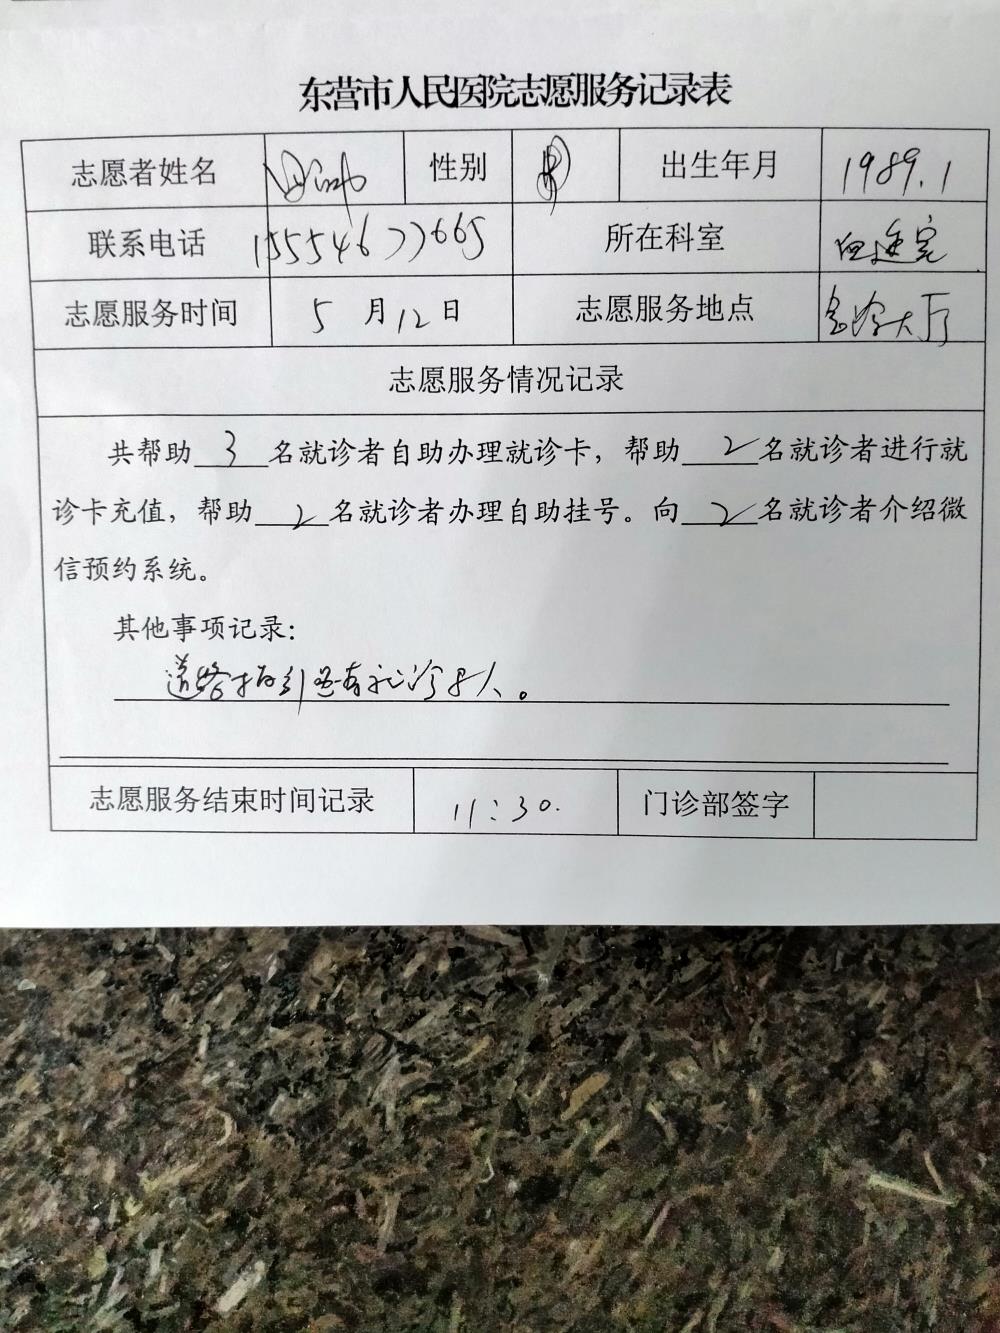 东营市人民医院志愿服务记录表
志愿者姓名 性别 男 出生年月 1989.1
联系电话 15554677665 所在科室
志愿服务时间 5月12日 志愿服务地点 急诊大厅
志愿服务情况记录
共帮助3名就诊者自助办理就诊卡，帮助2名就诊者进行就
诊卡充值，帮助2名就诊者办理自助挂号。向2名就诊者介绍微
信预约系统。
其他事项记录：
道路指引
志愿服务结束时间记录 11:30. 门诊部签字